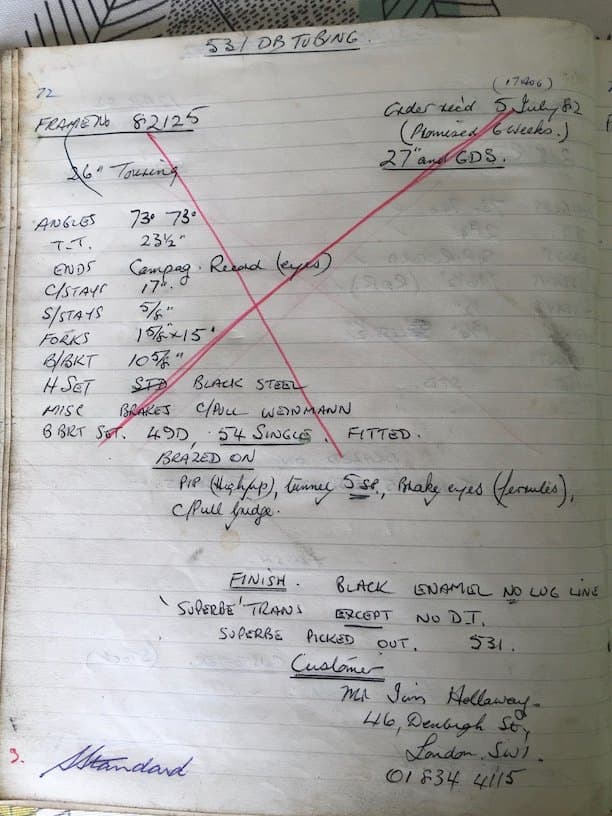 531 DB TUBING.
72
(17 AUG)
FRAME No 82125
Order rec'd 5 July 82
(Promised 6 weeks.)
27" and GDS.
26" Touring
ANGLES 73° 73°
T.T. 23½"
ENDS Campag. Record (eyes)
C/STAYS 17".
S/STAYS 5/8"
FORKS 1 5/8" x 15°
B/BKT 10 5/8"
H SET STD BLACK STEEL
MISC BRAKES C/PULL WEINMANN
B BRT SET. 49D, 54 SINGLE. FITTED.
BRAZED ON
PIP (High up), tunnel 5 sp., Brake eyes (ferrules),
C/Pull bridge.
FINISH. BLACK ENAMEL NO LUG LINE
'SUPERBE' TRANS EXCEPT NO D.T.
SUPERBE PICKED OUT. 531.
Customer
Mr Hollaway.
46, Denbigh St,
London. SW1.
01 834 4115
S. Standard